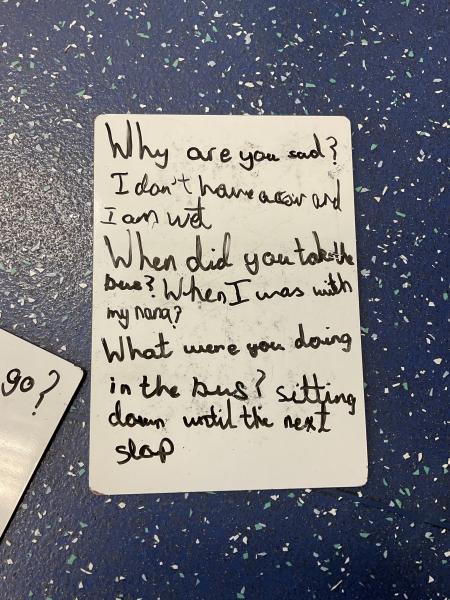 Why are you sad?
I don't have a car and
I am wet
When did you take the
bus? When I was with
my nana?
What were you doing
in the bus? sitting
down until the next
stop
go?